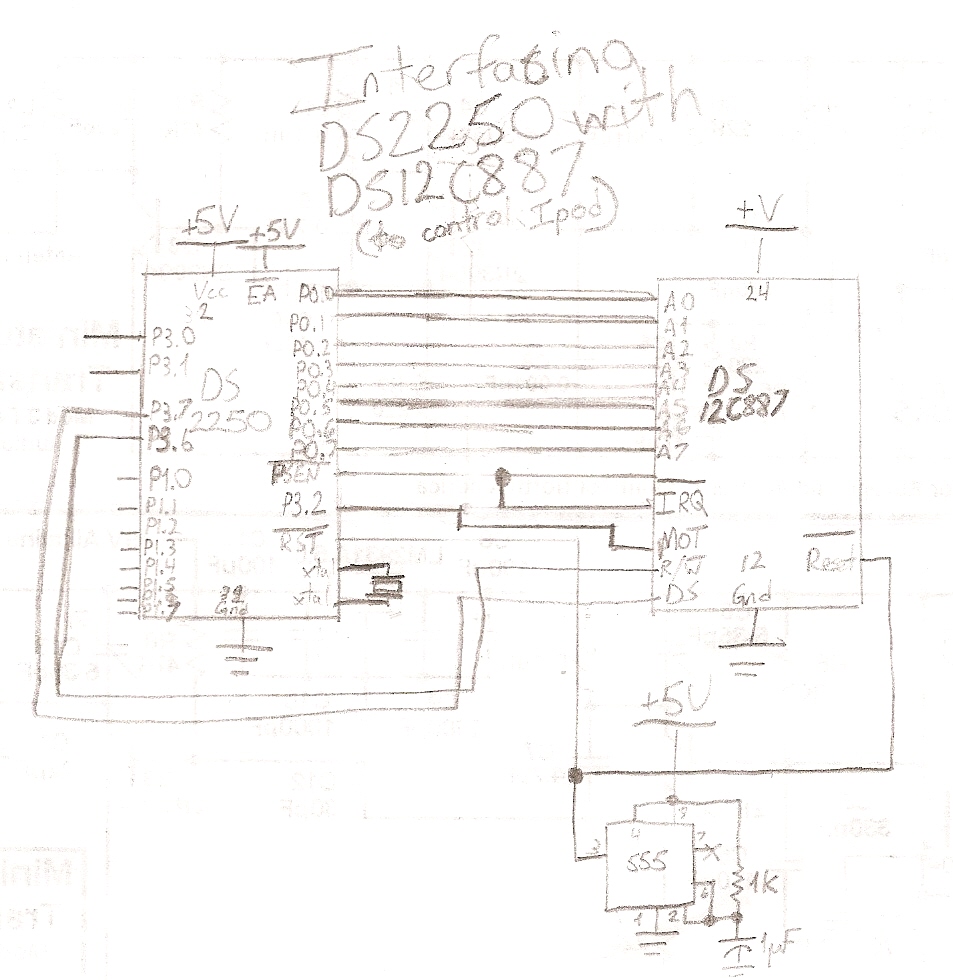 Interfacing
DS2250 with
DS12C887
(to control Ipod)
+5V
+5V
+V
Vcc
2
EA
P0.0
P0.1
P0.2
P0.3
P0.4
P0.5
P0.6
P0.7
PSEN
P3.2
RST
xtal
xtal
P3.0
P3.1
P3.7
P3.6
P1.0
P1.1
P1.2
P1.3
P1.4
P1.5
DS
2250
Gnd
24
A0
A1
A2
A3
A5
A6
A7
DS
12C887
IRQ
MOT
R/W
DS
12
Gnd
Reset
+5V
4
7
3
555
6
1
2
1K
1µF